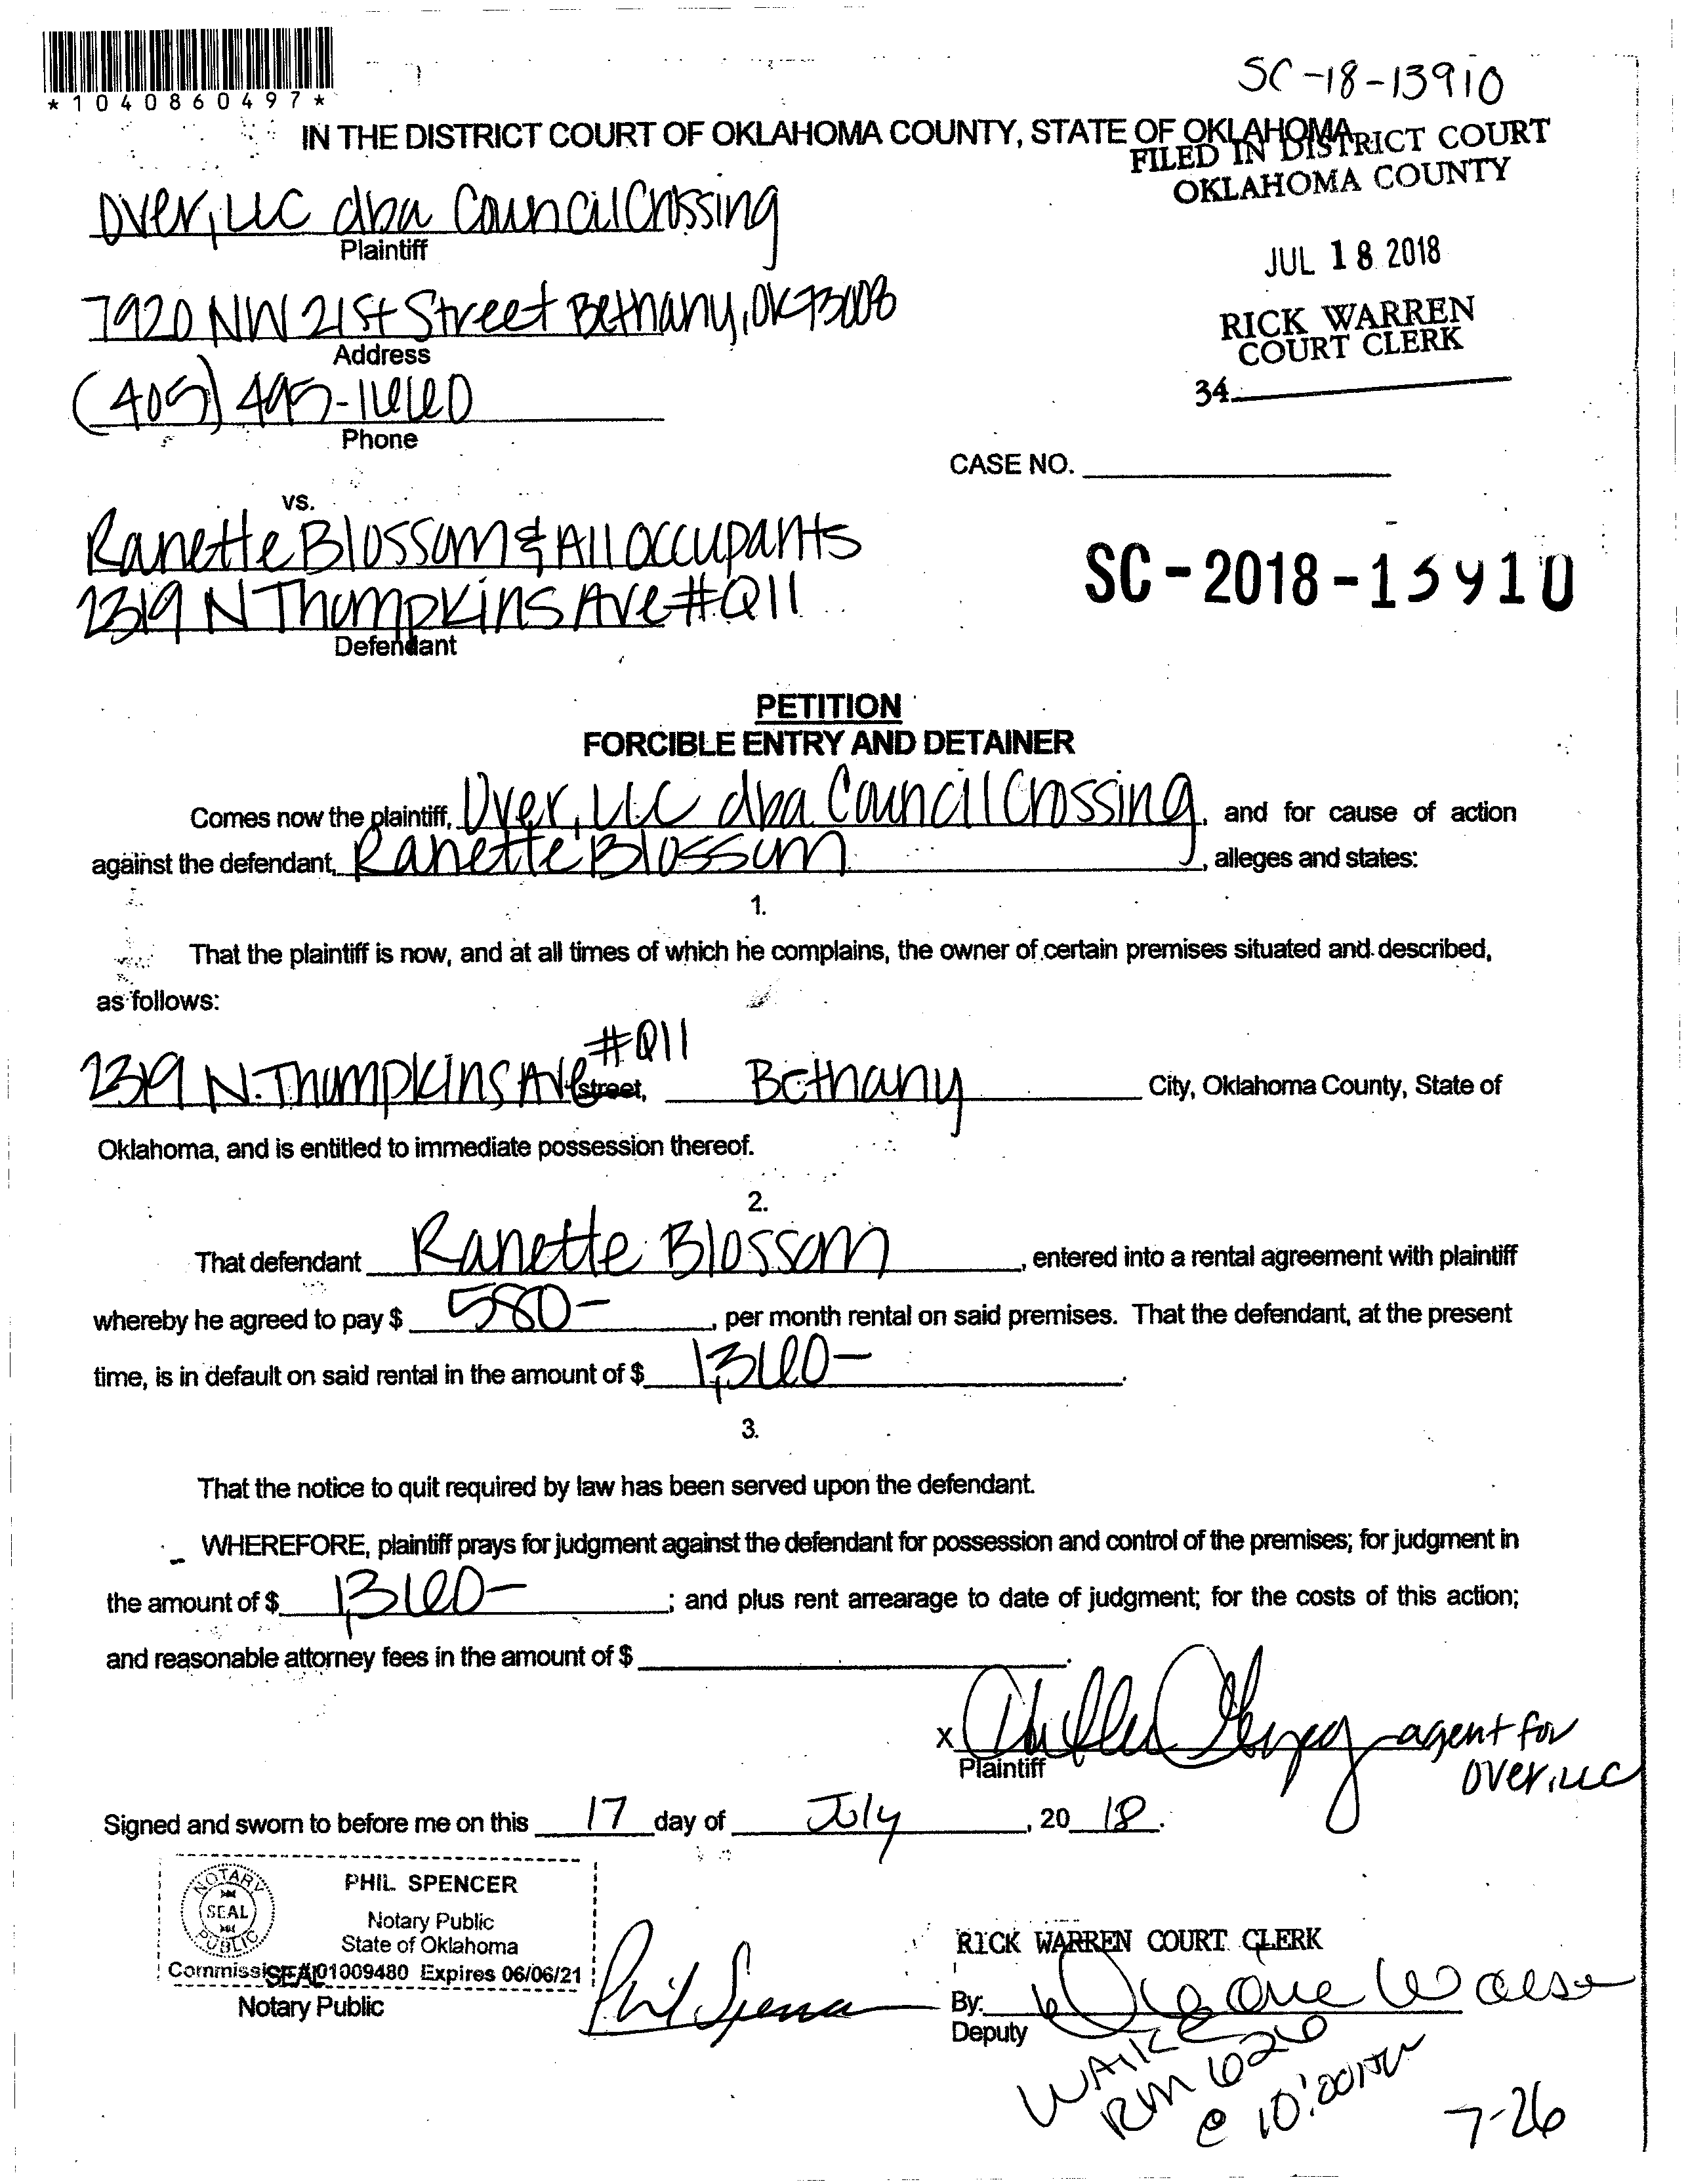 *1040860497*
SC-18-13910
IN THE DISTRICT COURT OF OKLAHOMA COUNTY, STATE OF OKLAHOMA
FILED IN DISTRICT COURT
OKLAHOMA COUNTY
Over, LLC dba Council Crossing
Plaintiff
JUL 18 2018
7920 NW 21st Street Bethany, OK 73008
Address
RICK WARREN
COURT CLERK
34
(405) 495-1660
Phone
CASE NO.
vs.
Ranette Blossom & All occupants
2319 N Thompkins Ave #Q11
Defendant
SC-2018-13910
PETITION
FORCIBLE ENTRY AND DETAINER
Comes now the plaintiff, Over, LLC dba Council Crossing, and for cause of action
against the defendant, Ranette Blossom, alleges and states:
1.
That the plaintiff is now, and at all times of which he complains, the owner of certain premises situated and described,
as follows:
2319 N. Thompkins Ave #Q11 street, Bethany City, Oklahoma County, State of
Oklahoma, and is entitled to immediate possession thereof.
2.
That defendant Ranette Blossom, entered into a rental agreement with plaintiff
whereby he agreed to pay $ 580-, per month rental on said premises. That the defendant, at the present
time, is in default on said rental in the amount of $ 1,360-.
3.
That the notice to quit required by law has been served upon the defendant.
WHEREFORE, plaintiff prays for judgment against the defendant for possession and control of the premises; for judgment in
the amount of $ 1,360-; and plus rent arrearage to date of judgment; for the costs of this action;
and reasonable attorney fees in the amount of $.
X agent for
Over, LLC
Plaintiff
Signed and sworn to before me on this 17 day of July, 2018.
NOTARY
SEAL
PUBLIC
PHIL SPENCER
Notary Public
State of Oklahoma
Commission #01009480 Expires 06/06/21
SEAL
Notary Public
Phil Spencer
RICK WARREN COURT CLERK
By:
Deputy
RM 626
@ 10:00AM
7-26